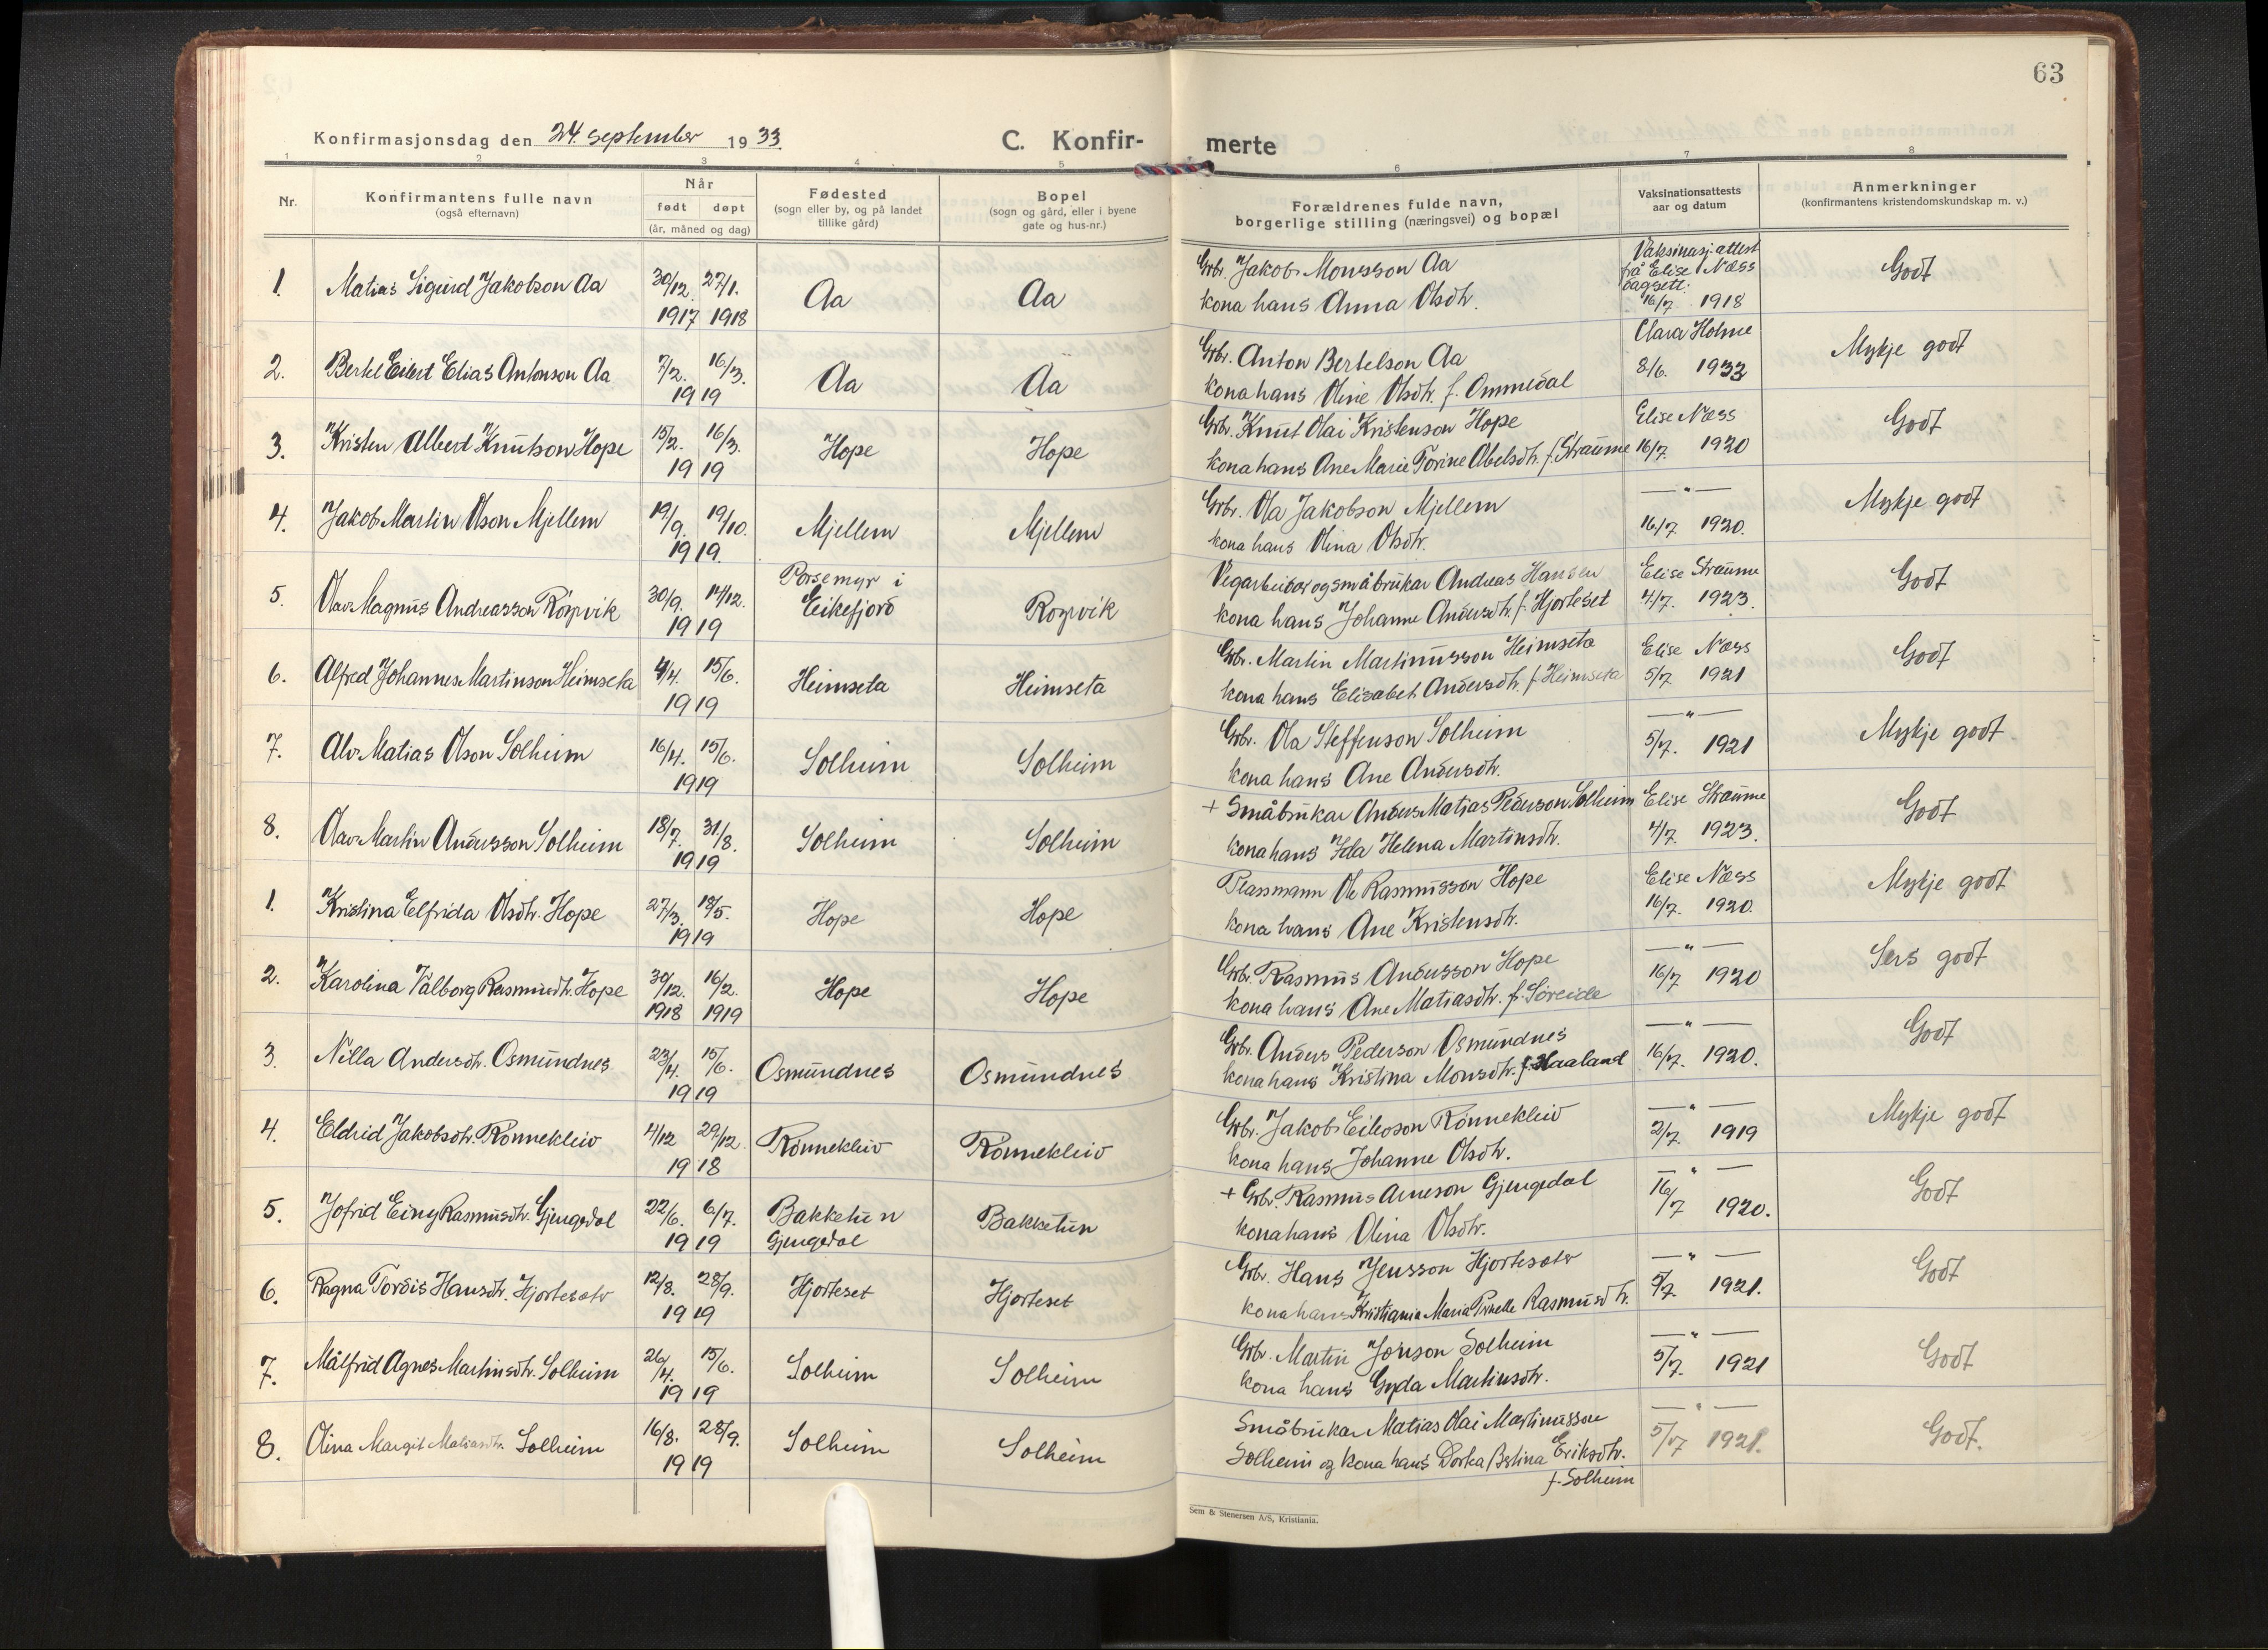 63
Konfirmasjonsdag den 24. september 1933.
C. Konfir-
merte
1 2 3 4 5 6 7 8
Nr.
Konfirmantens fulle navn
(også efternavn)
Når
født døpt
(år, måned og dag)
Fødested
(sogn eller by, og på landet
tillike gård)
Bopel
(sogn og gård, eller i byene
gate og hus-nr.)
Forældrenes fulde navn,
borgerlige stilling (næringsvei) og bopæl
Vaksinationsattests
aar og datum
Anmerkninger
(konfirmantens kristendomskundskap m. v.)
1. Matias Sigurd Jakobson Aa 30/12. 1917 27/1. 1918 Aa Aa
Grbr. Jakob Monsson Aa
kona hans Anna Olsdtr.
Vaksinasj.attest
frå Elise Næss
dagsett.
16/7 1918
Godt
2. Bertel Eilert Elias Antonson Aa 7/2. 16/3. 1919 Aa Aa
Grbr. Anton Bertelson Aa
kona hans Oline Olsdtr. f. Ommedal
Clara Holme
8/6. 1933
Mykje godt
3. Kristen Albert Knutson Hope 15/2. 16/3. 1919 Hope Hope
Grbr. Knut Olai Kristenson Hope
kona hans Ane Marie Torine Abelsdtr. f. Straume
Elise Næss
16/7 1920
Godt
4. Jakob Martin Olson Mjellem 19/9. 19/10. 1919. Mjellem Mjellem
Grbr. Ola Jakobson Mjellem
kona hans Olina Olsdtr.
— " —
16/7 1920.
Mykje godt
5. Olav Magnus Andreasson Röyrvik 30/9. 14/12. 1919
Porsemyr i
Eikefjord
Röyrvik
Vegarbeidar og småbrukar Andreas Hansen
kona hans Johanne Andersdtr. f. Hjorteset
Elise Straume
4/7. 1923.
Godt
6. Alfred Johannes Martinson Heimseta 4/4. 15/6. 1919 Heimseta Heimseta
Grbr. Martin Martinusson Heimseta
kona hans Elisabet Andersdtr. f. Heimseta
Elise Næss
5/7 1921
Godt
7. Alv Matias Olson Solheim 16/4. 15/6. 1919 Solheim Solheim
Grbr. Ola Steffenson Solheim
kona hans Ane Andersdtr.
— " —
5/7. 1921
Mykje godt
8. Olav Martin Andersson Solheim 18/7. 31/8. 1919 Solheim Solheim
+ Småbrukar Anders Matias Pederson Solheim
kona hans Ida Helena Martinsdtr.
Elise Straume
4/7. 1923.
Godt
1. Kristina Elfrida Olsdtr. Hope 27/3. 18/5. 1919 Hope Hope
Plassmann Ole Rasmusson Hope
kona hans Ane Kristensdtr.
Elise Næss
16/7. 1920.
Mykje godt
2. Karolina Valborg Rasmusdtr. Hope 30/12. 1918 16/2. 1919 Hope Hope
Grbr. Rasmus Andersson Hope
kona hans Ane Matiasdtr. f. Söreide
— " —
16/7 1920
Sers godt
3. Nilla Andersdtr. Osmundnes 23/4. 15/6. 1919 Osmundnes Osmundnes
Grbr. Anders Pederson Osmundnes
kona hans Kristina Monsdtr. f. Haaland
— " —
16/7. 1920.
Godt
4. Eldrid Jakobsdtr. Rönnekleiv 4/12 29/12. 1918 Rönnekleiv Rönnekleiv
Grbr. Jakob Eilivson Rönnekleiv
kona hans Johanne Olsdtr.
— " —
2/7. 1919
Mykje godt
5. Jofrid Einy Rasmusdtr. Gjengedal 22/6. 6/7. 1919
Bakketun
Gjengedal
Bakketun
+ Grbr. Rasmus Arneson Gjengedal
kona hans Olina Olsdtr.
— " —
16/7 1920.
Godt
6. Ragna Tordis Hansdtr. Hjorteseter 12/8. 28/9. 1919 Hjorteset Hjorteset
Grbr. Hans Jensson Hjorteseter
kona hans Kristiania Maria Pernelle Rasmusdtr.
— " —
5/7. 1921.
Godt
7. Målfrid Agnes Martinsdtr. Solheim 26/4. 15/6. 1919 Solheim Solheim
Grbr. Martin Jonson Solheim
kona hans Gyda Martinsdtr.
— " —
5/7. 1921
Godt
8. Olina Margit Matiasdtr. Solheim 16/8. 28/9. 1919 Solheim Solheim
Småbrukar Matias Olai Martinusson
Solheim og kona hans Dortea Bertina Eriksdtr.
f. Solheim
— " —
5/7 1921.
Godt.
Sem & Stenersen A/S, Kristiania.